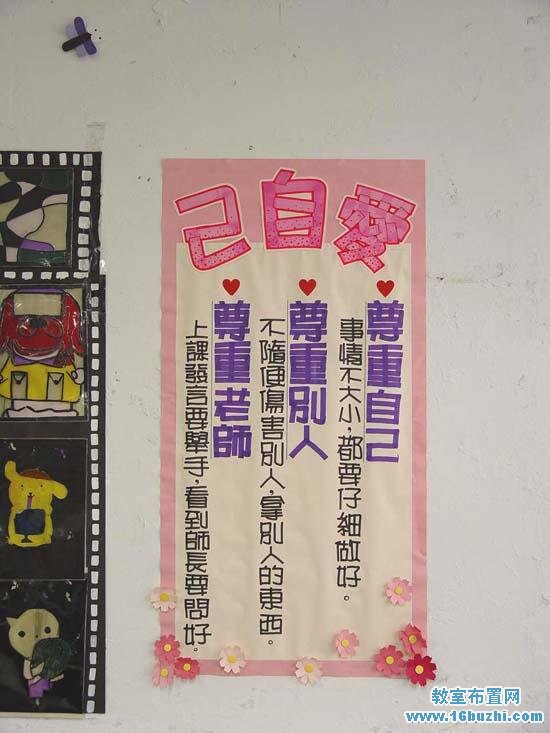 愛自己
尊重自己
事情不大小,都要仔細做好。
尊重別人
不隨便傷害別人,拿別人的東西。
尊重老師
上課發言要舉手,看到師長要問好。
教室布置网
www.16buzhi.com